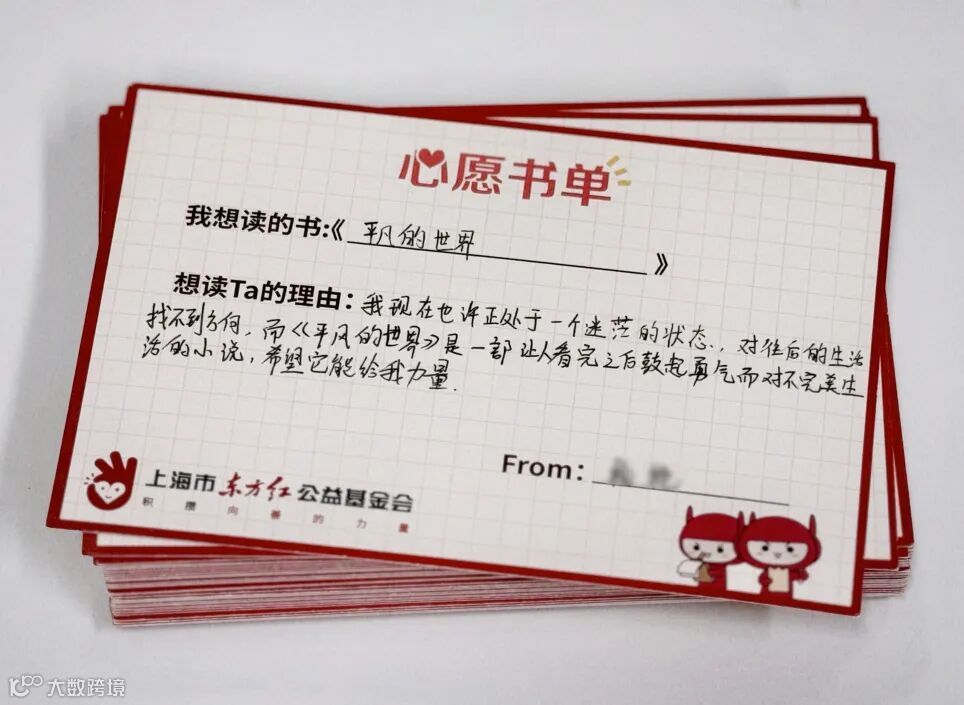 心愿书单
我想读的书:《 平凡的世界 》
想读Ta的理由：我现在也许正处于一个迷茫的状态、对往后的生活
找不到方向，而《平凡的世界》是一部让人看完之后鼓起勇气面对不完美生
活的小说，希望它能给我力量.
From：
上海市东方红公益基金会
积攒向善的力量
大数跨境